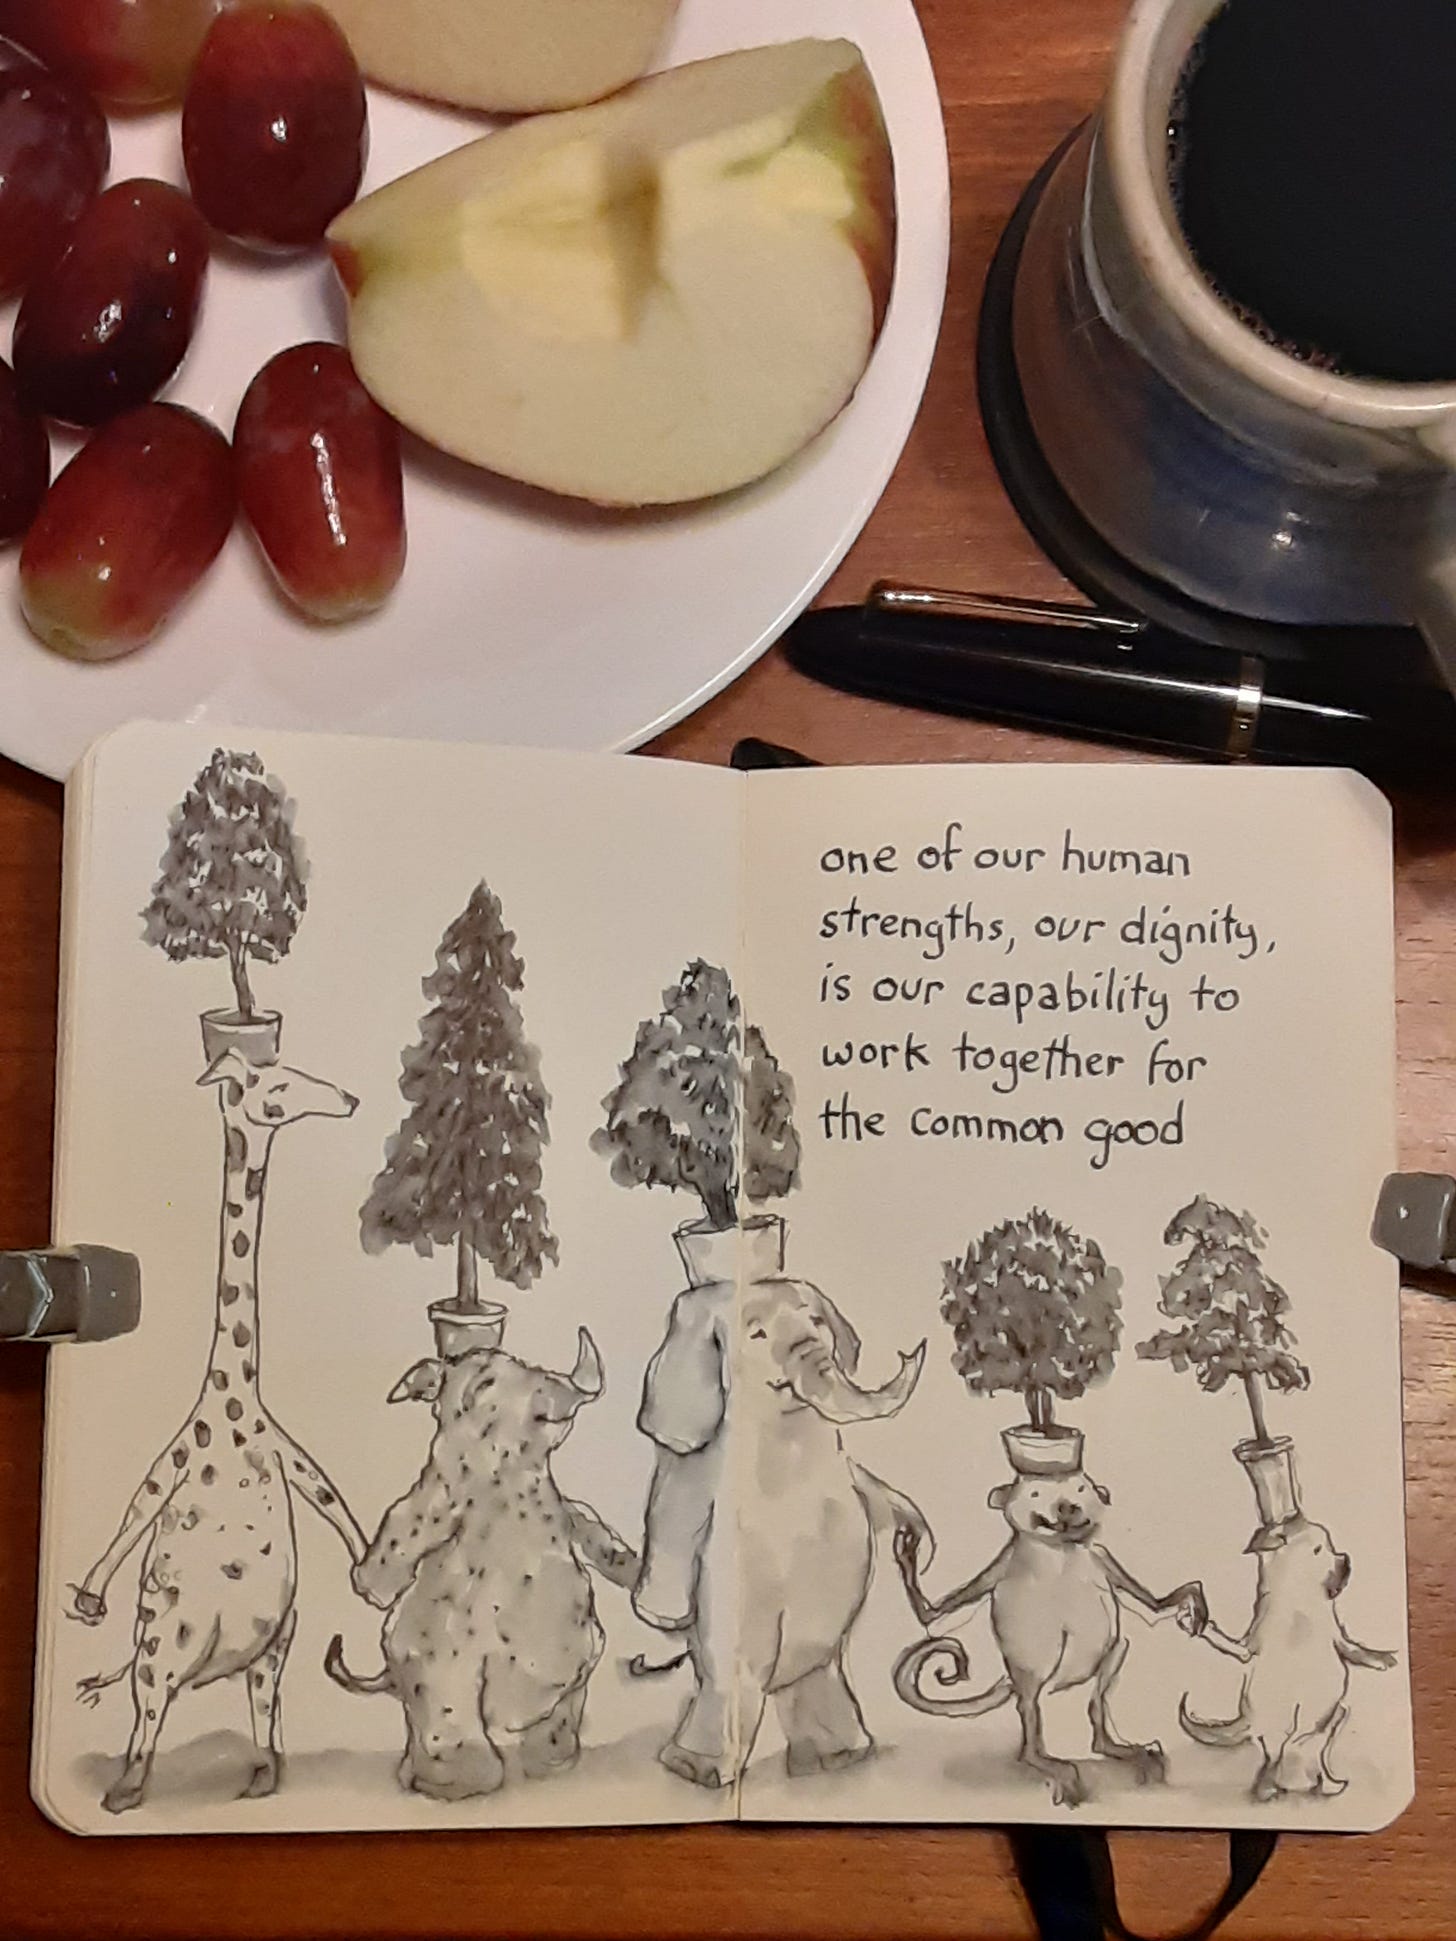 one of our human
strengths, our dignity,
is our capability to
work together for
the common good